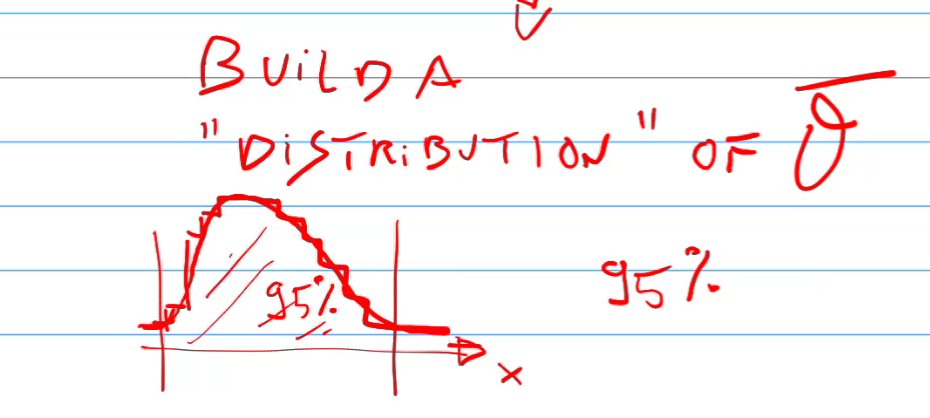 BUILD A
"DISTRIBUTION" OF ϑ̅
95%
95%
x